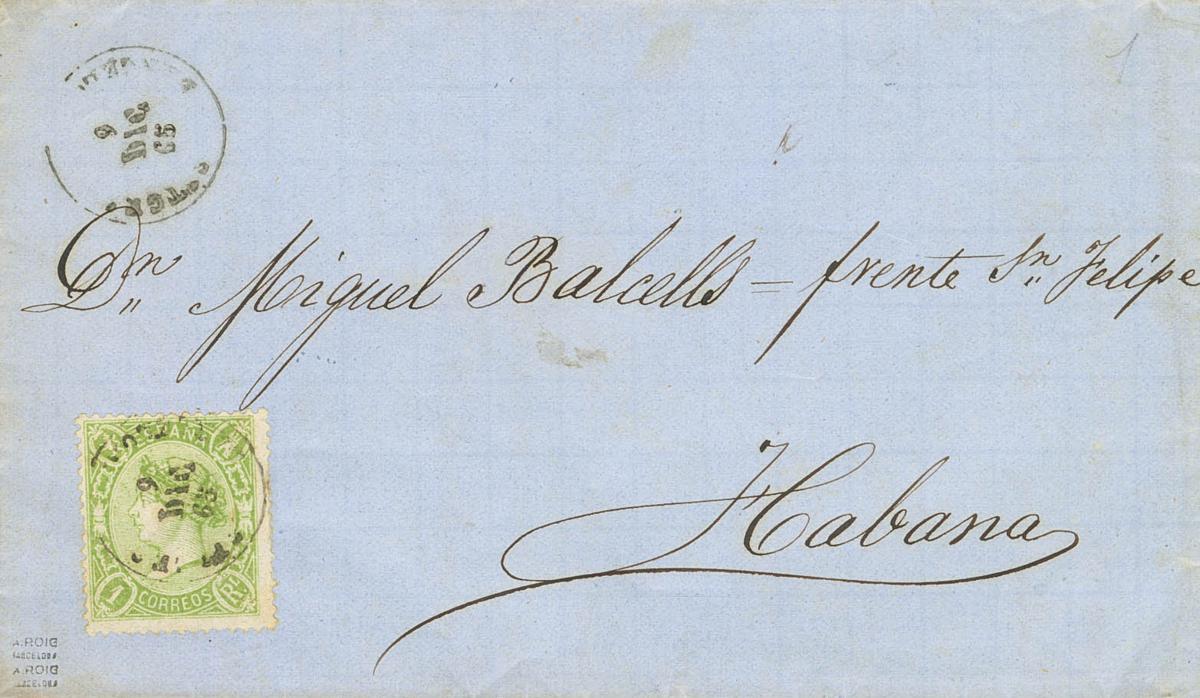 9
DIC
65
Dn Miguel Balcells = frente Sn Felipe
Habana
ESPAÑA
9
DIC
65
1 CORREOS RL
A.ROIG
BARCELONA
A.ROIG
BARCELONA
1